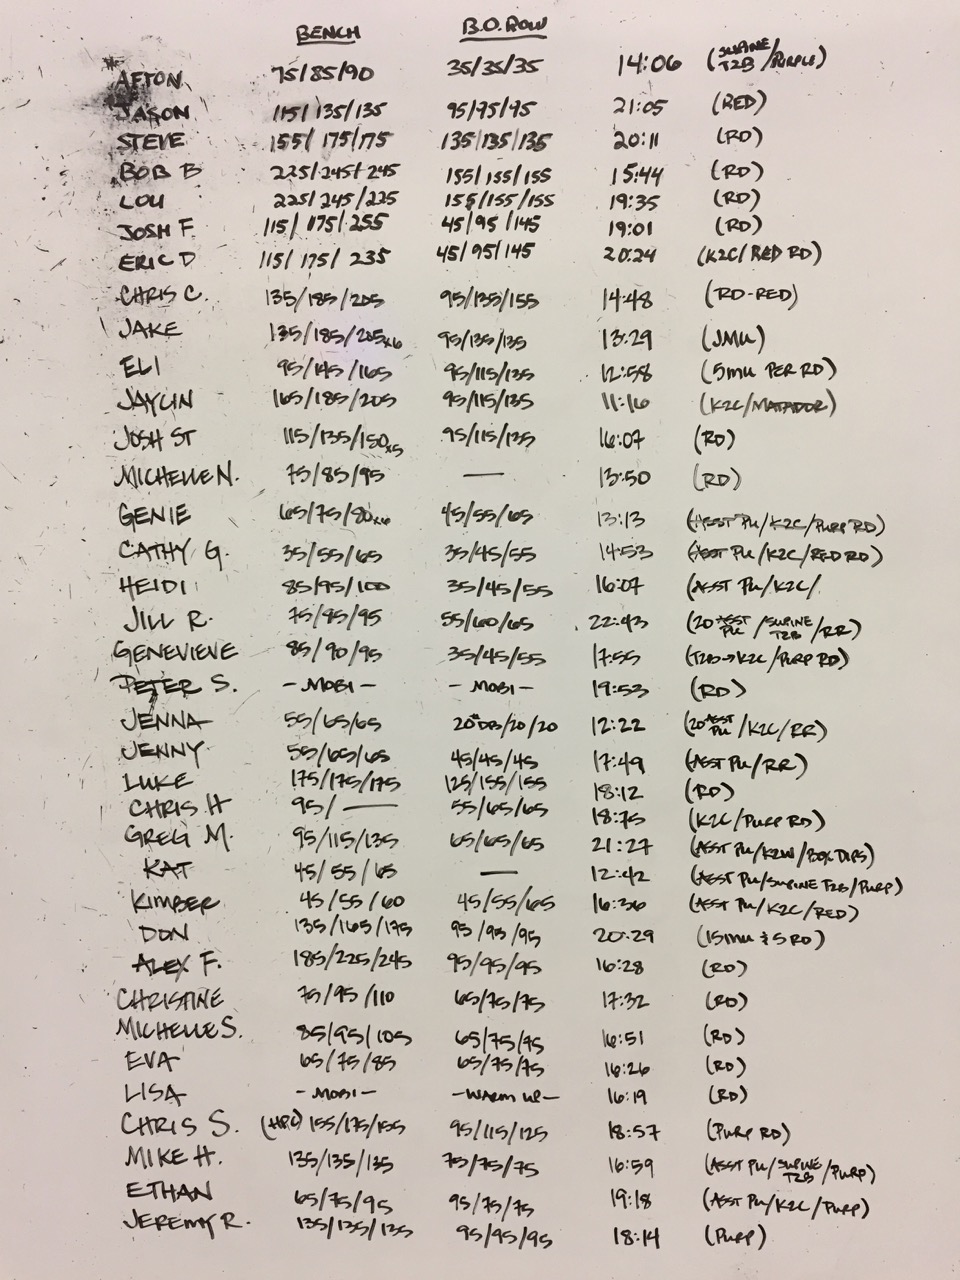 BENCH B.O. ROW
AFTON 75/85/90 35/35/35 14:06 (SUPINE T2B/PURPLE)
JASON 115/135/135 95/95/95 21:05 (RED)
STEVE 155/175/175 135/135/135 20:11 (RD)
BOB B 225/245/245 155/155/155 15:44 (RD)
LOU 225/245/225 155/155/155 19:35 (RD)
JOSH F 115/175/255 45/95/145 19:01 (RD)
ERIC D 115/175/235 45/95/145 20:24 (K2C/RED RD)
CHRIS C. 135/185/205 95/135/155 14:48 (RD-RED)
JAKE 135/185/205x6 95/135/135 13:29 (JMU)
ELI 95/145/165 95/115/135 12:58 (5MU PER RD)
JAYLIN 165/185/205 95/115/135 11:16 (K2C/MATADOR)
JOSH ST 115/135/150x5 95/115/135 16:07 (RD)
MICHELLE N. 75/85/95 — 13:50 (RD)
GENIE 65/75/80x6 45/55/65 13:13 (ASST PU/K2C/PURP RD)
CATHY G. 35/55/65 35/45/55 14:53 (ASST PU/K2C/RED RD)
HEIDI 85/95/100 35/45/55 16:07 (ASST PU/K2C/
JILL R. 75/85/95 55/60/65 22:43 (20 ASST PU/SUPINE T2B/RR)
GENEVIEVE 85/90/95 35/45/55 17:55 (T2B→K2C/PURP RD)
PETER S. -MOBI- -MOBI- 19:53 (RD)
JENNA 55/65/65 20#DB/20/20 12:22 (20 ASST PU/K2C/RR)
JENNY 55/65/65 45/45/45 17:49 (ASST PU/RR)
LUKE 175/175/175 125/155/155 18:12 (RD)
CHRIS H 95/— 55/65/65 18:75 (K2C/PURP RD)
GREG M. 95/115/135 65/65/65 21:27 (ASST PU/K2W/BOX DIPS)
KAT 45/55/65 — 12:42 (ASST PU/SUPINE T2B/PURP)
KIMBER 45/55/60 45/55/65 16:36 (ASST PU/K2C/RED)
DON 135/165/175 95/95/95 20:29 (15MU & 5 RD)
ALEX F. 185/225/245 95/95/95 16:28 (RD)
CHRISTINE 75/95/110 65/75/75 17:32 (RD)
MICHELLE S. 85/95/105 65/75/75 16:51 (RD)
EVA 65/75/85 65/75/75 16:26 (RD)
LISA -MOBI- -WARM UP- 16:19 (RD)
CHRIS S. (HPC) 155/175/155 95/115/125 18:57 (PURP RD)
MIKE H. 135/135/135 75/75/75 16:59 (ASST PU/SUPINE T2B/PURP)
ETHAN 65/75/95 95/75/75 19:18 (ASST PU/K2C/PURP)
JEREMY R. 135/135/135 95/95/95 18:14 (PURP)